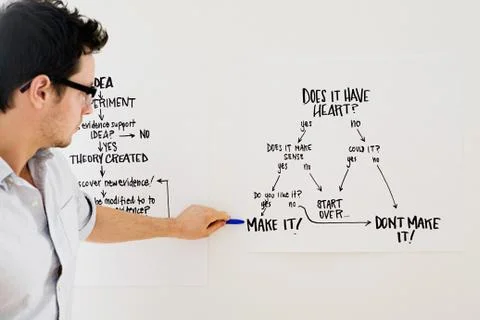 IDEA
EXPERIMENT
evidence support
IDEA? → NO
YES
THEORY CREATED
discover new evidence!
be modified to
evidence?
DOES IT HAVE
HEART?
yes no
DOES IT MAKE
SENSE
COULD IT?
yes no
yes no
Do you like it?
yes no
START
OVER...
MAKE IT!
DONT MAKE
IT!